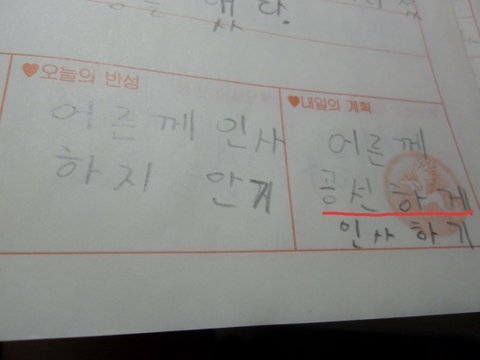 오늘의 반성
어른께 인사
하지 안기
내일의 계획
어른께
공선하게
인사하기